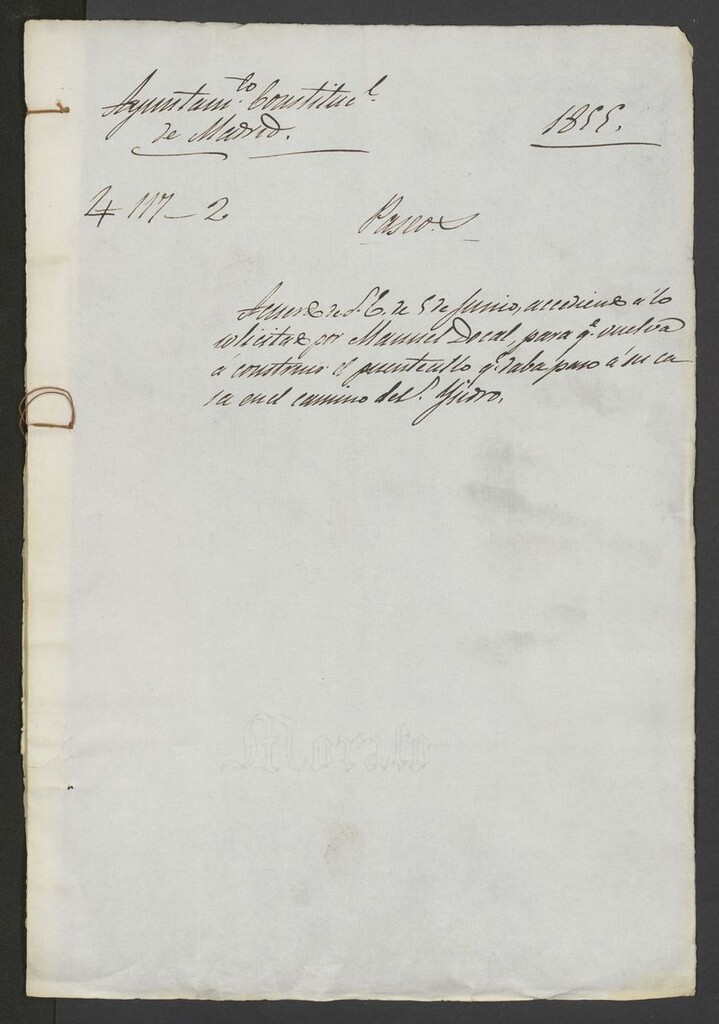 Ayuntam.to Constituc.l
de Madrid.
1855.
4 117-2
Paseos
Acuerdo de S.E. de 5 de Junio, accediendo á lo
solicitado por Manuel Docal, para q.e vuelva
á construir el puentecillo q.e daba paso á su ca-
sa en el camino de S.n Ysidro.